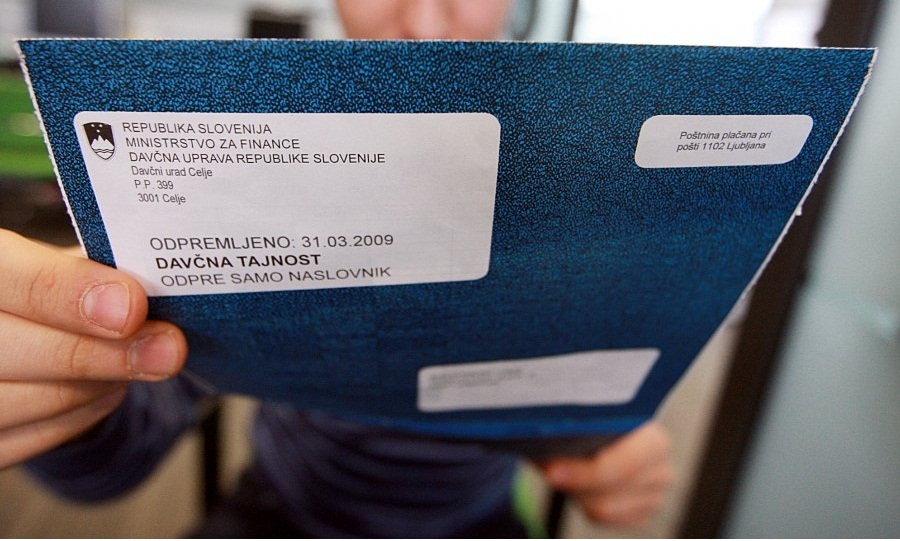 REPUBLIKA SLOVENIJA
MINISTRSTVO ZA FINANCE
DAVČNA UPRAVA REPUBLIKE SLOVENIJE
Davčni urad Celje
P.P. 399
3001 Celje
ODPREMLJENO: 31.03.2009
DAVČNA TAJNOST
ODPRE SAMO NASLOVNIK
Poštnina plačana pri
pošti 1102 Ljubljana